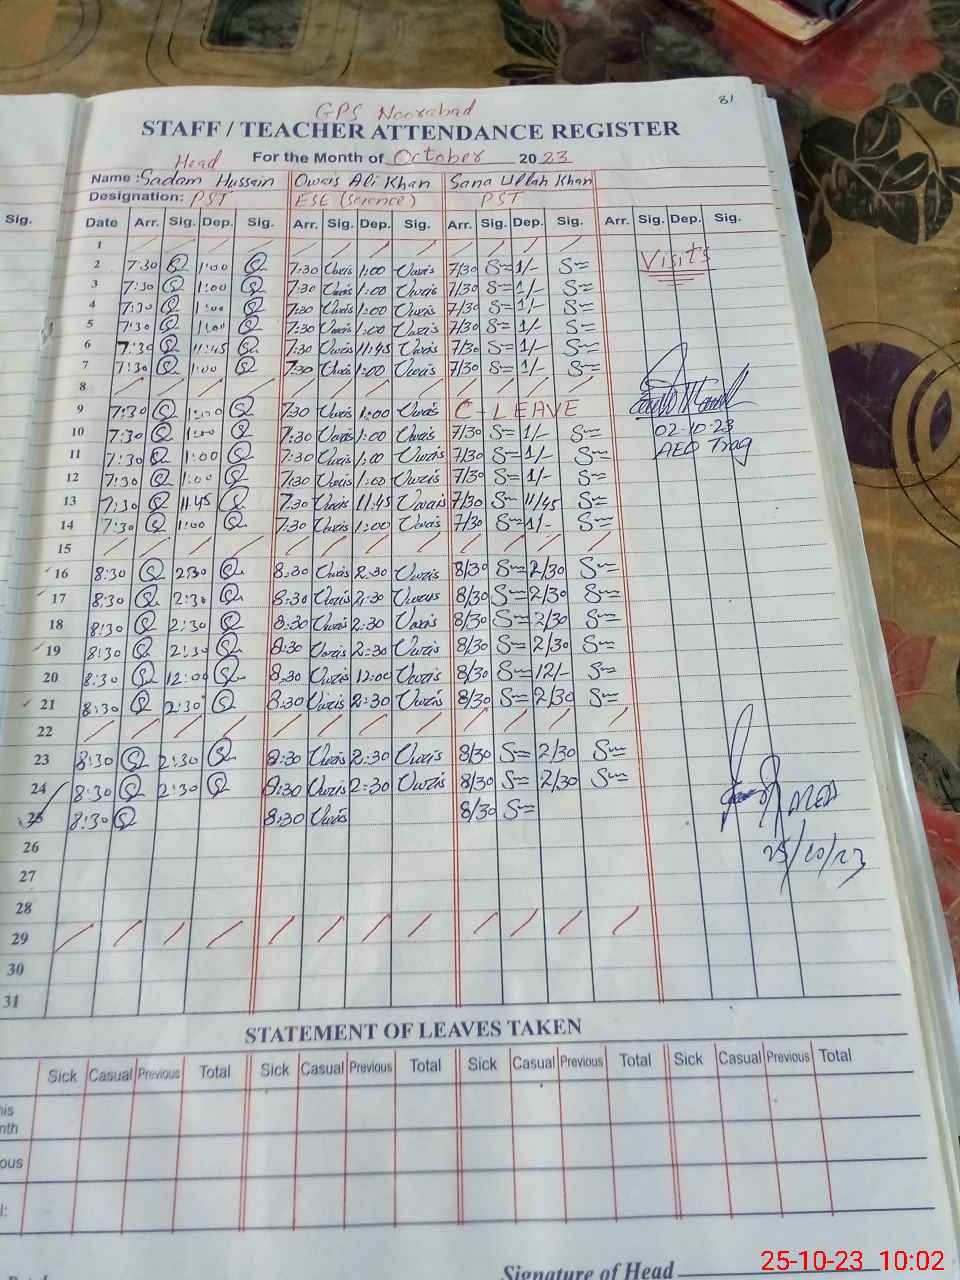 81
GPS Noorabad
STAFF / TEACHER ATTENDANCE REGISTER
Head For the Month of October 2023
Name : Sadam Hussain Owais Ali Khan Sana Ullah Khan
Designation: PST ESE (Science) PST
Sig. Date Arr. Sig. Dep. Sig. Arr. Sig. Dep. Sig. Arr. Sig. Dep. Sig. Arr. Sig. Dep. Sig.
1
Visits
2 7:30 1:00 7:30 Owais 1:00 Owais 7/30 1/-
3 7:30 1:00 7:30 Owais 1:00 Owais 7/30 1/-
4 7:30 1:00 7:30 Owais 1:00 Owais 7/30 1/-
5 7:30 1:00 7:30 Owais 1:00 Owais 7/30 1/-
6 7:30 11:45 7:30 Owais 11:45 Owais 7/30 1/-
7 7:30 1:00 7:30 Owais 1:00 Owais 7/30 1/-
8
9 7:30 1:00 7:30 Owais 1:00 Owais C-LEAVE
10 7:30 1:00 7:30 Owais 1:00 Owais 7/30 1/- 02-10-23
11 7:30 1:00 7:30 Owais 1:00 Owais 7/30 1/- AEO Trag
12 7:30 1:00 7:30 Owais 1:00 Owais 7/30 1/-
13 7:30 11:45 7:30 Owais 11:45 Owais 7/30 11/45
14 7:30 1:00 7:30 Owais 1:00 Owais 7/30 1/-
15
16 8:30 2:30 8:30 Owais 2:30 Owais 8/30 2/30
17 8:30 2:30 8:30 Owais 2:30 Owais 8/30 2/30
18 8:30 2:30 8:30 Owais 2:30 Owais 8/30 2/30
19 8:30 2:30 8:30 Owais 2:30 Owais 8/30 2/30
20 8:30 12:00 8:30 Owais 12:00 Owais 8/30 12/-
21 8:30 2:30 8:30 Owais 2:30 Owais 8/30 2/30
22
23 8:30 2:30 8:30 Owais 2:30 Owais 8/30 2/30
24 8:30 2:30 8:30 Owais 2:30 Owais 8/30 2/30
25 8:30 8:30 Owais 8/30
26 25/10/23
27
28
29
30
31
STATEMENT OF LEAVES TAKEN
Sick Casual Previous Total Sick Casual Previous Total Sick Casual Previous Total Sick Casual Previous Total
Signature of Head
25-10-23 10:02